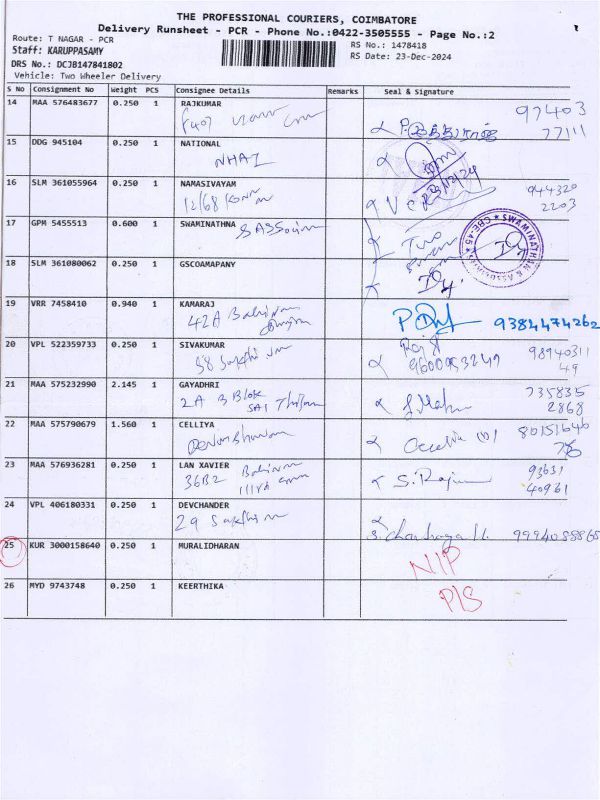 THE PROFESSIONAL COURIERS, COIMBATORE
Delivery Runsheet - PCR - Phone No.:0422-3505555 - Page No.:2
Route: T NAGAR - PCR
RS No.: 1478418
Staff: KARUPPASAMY
RS Date: 23-Dec-2024
DRS No.: DCJB147841802
Vehicle: Two Wheeler Delivery
S No Consignment No Weight PCS Consignee Details Remarks Seal & Signature
14 MAA 576483677 0.250 1 RAJKUMAR 97403
F407 77111
15 DDG 945104 0.250 1 NATIONAL
NHAI 23/12/24
16 SLM 361055964 0.250 1 NAMASIVAYAM 944320
12/68 2203
17 GPM 5455513 0.600 1 SWAMINATHNA
SWAMINATHAN & ASSOCIATES
CBE-45
18 SLM 361080062 0.250 1 GSCOAMAPANY
19 VRR 7458410 0.940 1 KAMARAJ
42A 9384474262
20 VPL 522359733 0.250 1 SIVAKUMAR 98940311
58 9600093249 49
21 MAA 575232990 2.145 1 GAYADHRI 735835
2A B Blok 2868
SAI
22 MAA 575790679 1.560 1 CELLIYA
23 MAA 576936281 0.250 1 LAN XAVIER 93631
36B2 S. 40961
24 VPL 406180331 0.250 1 DEVCHANDER
29 9994088865
25 KUR 3000158640 0.250 1 MURALIDHARAN
N/P
26 MYD 9743748 0.250 1 KEERTHIKA
P/S